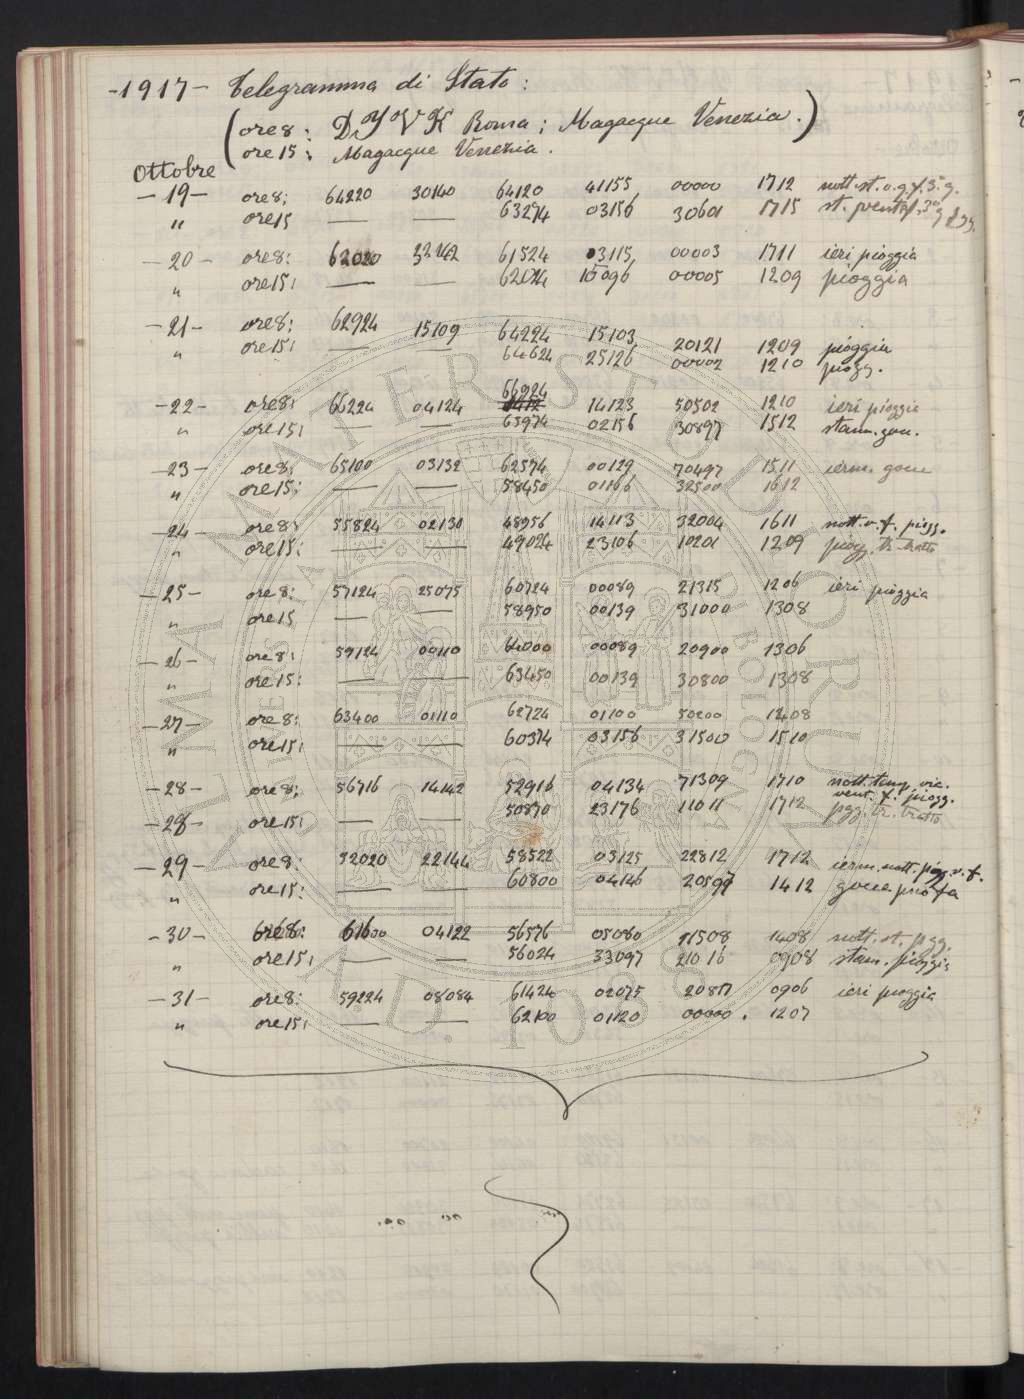 -1917- Telegramma di Stato:
(ore 8: D Y V K Roma; Magacque Venezia.)
ore 15: Magacque Venezia.
Ottobre
-19- ore 8: 64220 30140 64120 41155 00000 1712 nott. st. o.g.f. 3ª g.
" ore 15 — — 63274 03156 30601 1715
-20- ore 8: 62020 32142 61524 03115 00003 1711 ieri pioggia
" ore 15: — — 62024 15096 00005 1209 pioggia
-21- ore 8: 62924 15109 64224 15103 20121 1209 pioggia
" ore 15: — — 64624 25126 00002 1210 piogg.
66924
-22- ore 8: 66224 04124 14123 50502 1210 ieri pioggia
" ore 15: — — 65974 02156 30897 1512 stam. goc.
-23- ore 8: 65100 03132 62574 00129 70497 1511 ierm. gocce
" ore 15: — — 58450 01166 32500 1612
-24- ore 8: 55824 02131 48956 14113 32004 1611 nott. v. f. piogg.
" ore 15: — — 49024 23106 10201 1209 piogg. tr. tratto
-25- ore 8: 57124 25075 60724 00089 21315 1206 ieri pioggia
" ore 15 — — 58950 00139 31000 1308
-26- ore 8: 59124 00110 64000 00089 20900 1306
" ore 15: — — 63450 00139 30800 1308
-27- ore 8: 63400 01110 62724 01100 50200 1208
" ore 15: — — 60374 03156 31500 1510
-28- ore 8: 56716 14142 52916 04134 71309 1710 nott. temp. vic.
vent. f. piogg.
-28- ore 15: — — 50870 23176 11011 1712 pgg. tr. tratto
-29- ore 8: 32020 22144 58522 03125 22812 1712 ierm. nott. piogg. v. f.
" ore 15: — — 60800 04146 20597 1412 gocce prio fa
-30- ore 8: 61600 04122 56576 05080 11508 1408 nott. st. pgg.
" ore 15: — — 56024 33097 21016 0908 stam. pioggia
-31- ore 8: 59224 08084 61424 02075 20817 0906 ieri pioggia
" ore 15: — — 62100 01120 00000. 1207
ALMA MATER STUDIORUM
A.D. 1088